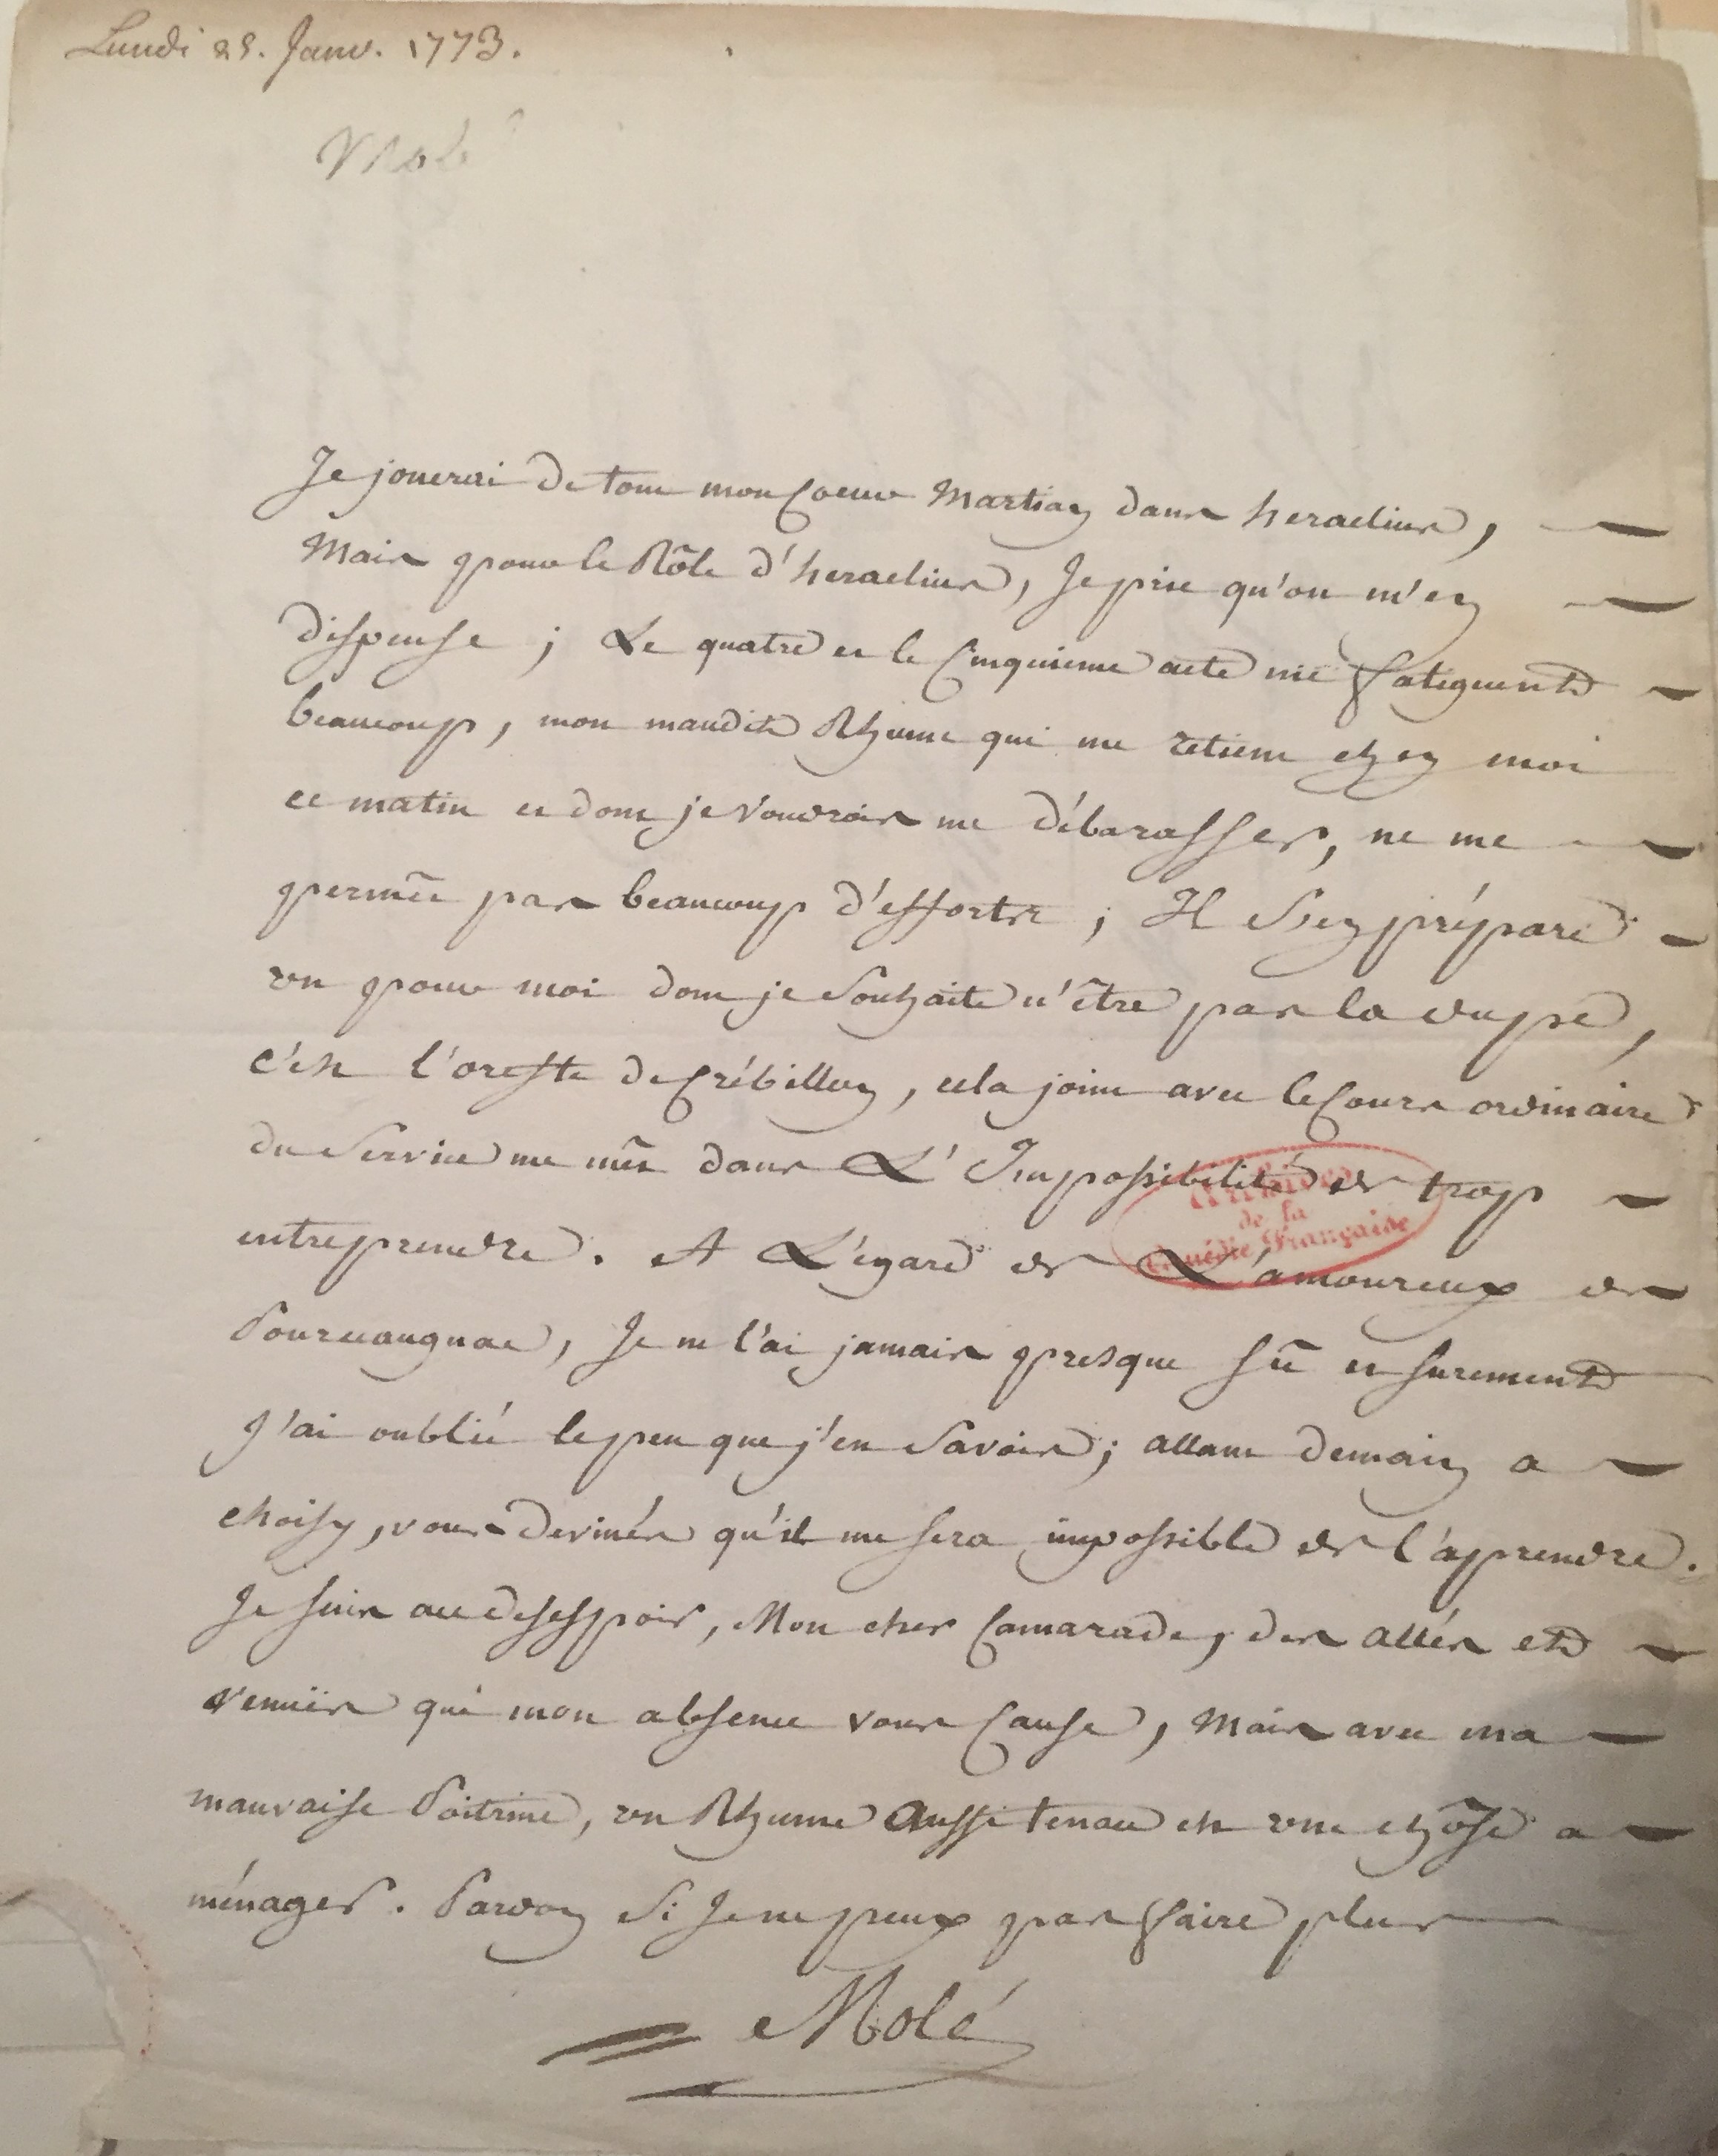 Lundi 25. Janv. 1773.
Molé
Je jouerai de tout mon Coeur Martian dans heraclius,
Mais pour le Rôle d'heraclius, Je prie qu'on m'en
dispense ; Le quatre et le Cinquieme acte me fatiguent
beaucoup, mon maudit Rhume qui me retient chez moi
ce matin et dont je voudrais me débarasser, ne me
permet pas beaucoup d'efforts ; Il s'en prépare
un pour moi dont je Souhaite n'être pas la dupe,
c'est l'oreste de Crébillon, cela joint avec le Cours ordinaire
du Service me met dans L'Impossibilité de trop
entreprendre. A L'égard de L'amoureux de
Pourceaugnac, Je ne l'ai jamais presque sû et surement
J'ai oublié le peu que j'en Savois ; allant demain a
choisy, vous devinés qu'il me sera impossible de l'apprendre.
Je suis au desespoir, Mon cher Camarade, des allés et
venües que mon absence vous Cause, Mais avec ma
mauvaise Poitrine, un Rhume Aussi tenace est une chôse a
ménager. Pardon Si Je ne peux pas faire plus
Molé
Archives
de la
Comédie Française